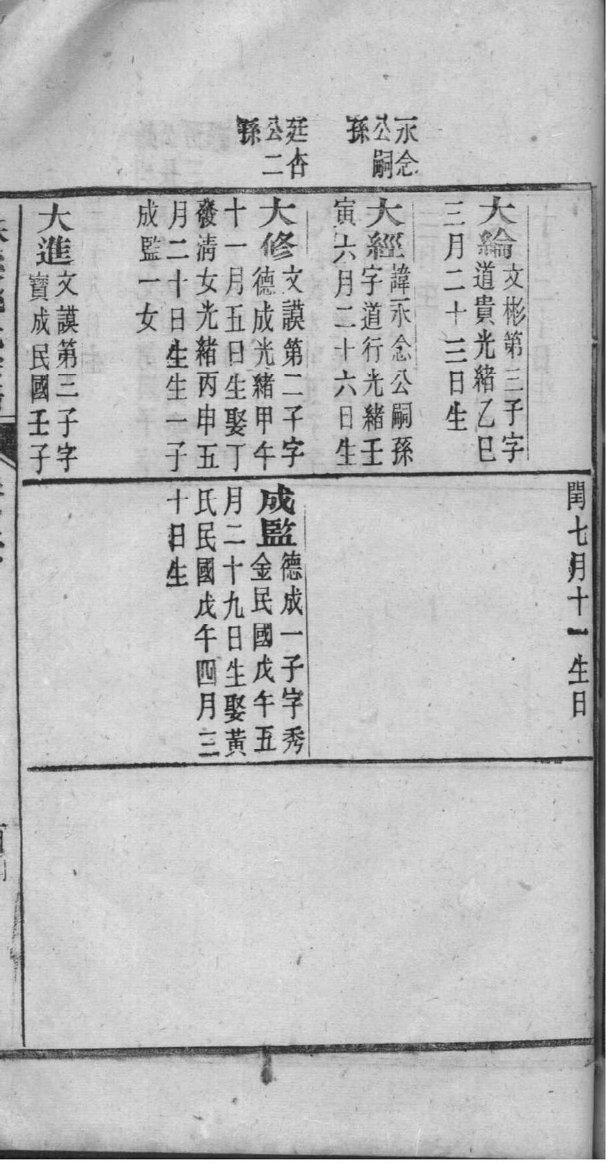 永念
公嗣
孫
廷杏
公二
孫
大綸
文彬第三子字
道貴光緒乙巳
三月二十三日生
大經
諱永念公嗣孫
字道行光緒壬
寅六月二十六日生
大修
文謨第二子字
德成光緒甲午
十一月五日生娶丁
發清女光緒丙申五
月二十日生生一子
成監一女
大進
文謨第三子字
寶成民國壬子
閏七月十一生日
成監
德成一子字秀
金民國戊午五
月二十九日生娶黃
氏民國戊午四月三
十日生